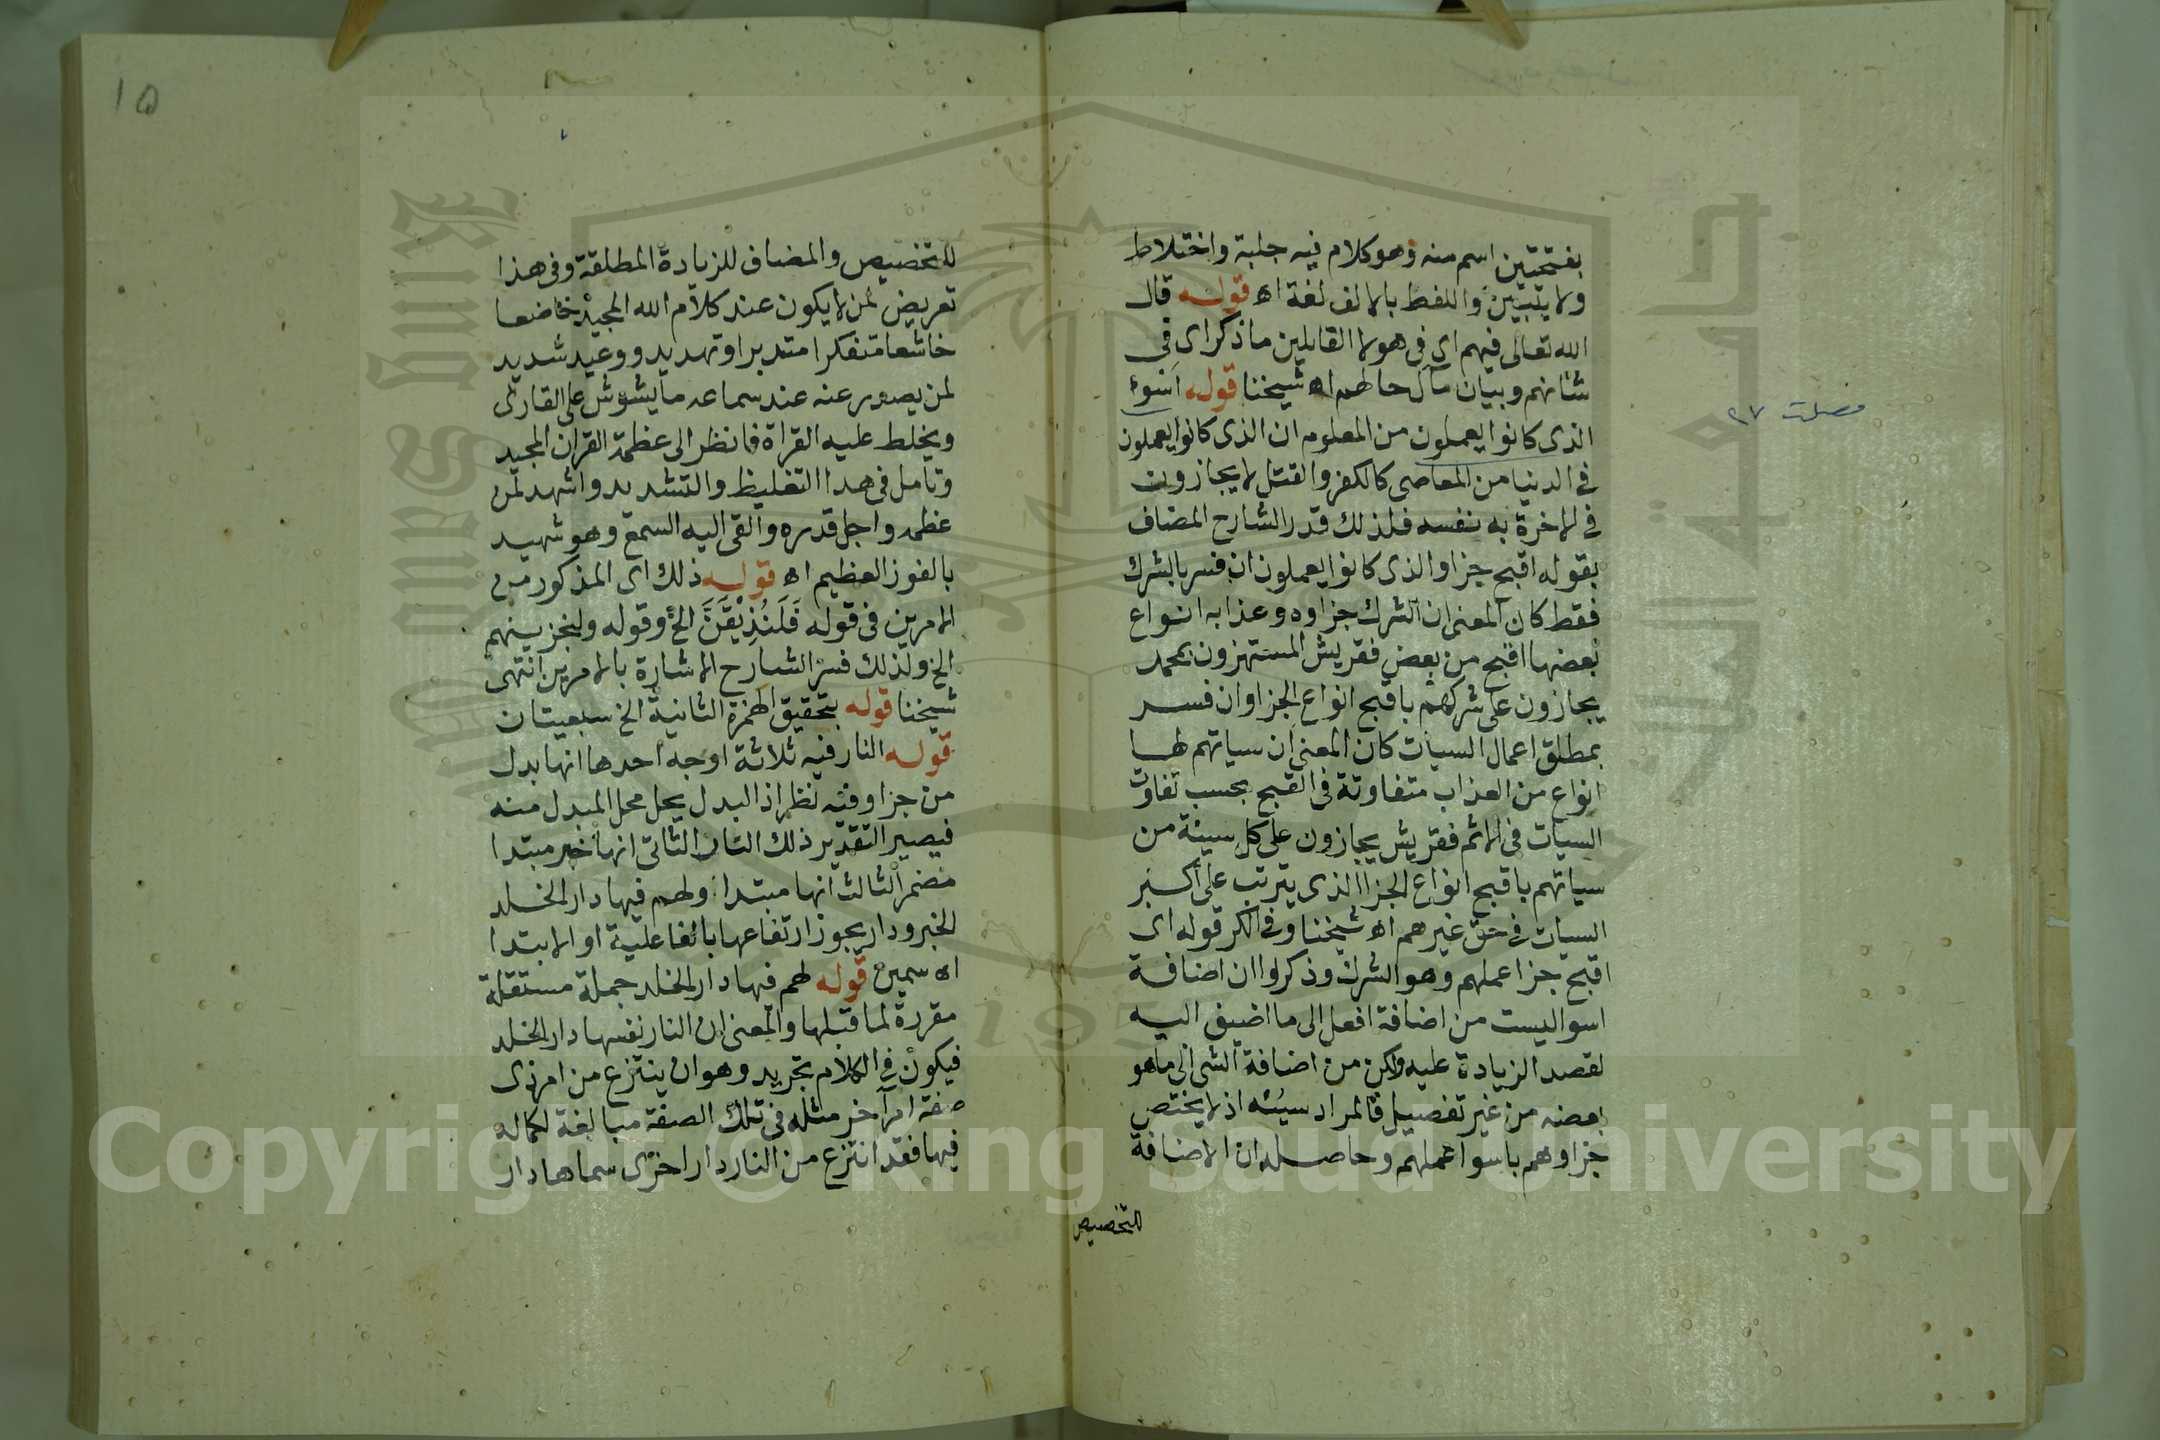 بفتحتين اسم منه وهو كلام فيه جلبة واختلاط
ولا يتبين واللفط بالالف لغة اه قوله قال
الله تعالى فيهم اى فى هولا القايلين ما ذكر اى فى
شانهم وبيان مآل حالهم اه شيخنا قوله اسوء
الذى كانوا يعملون من المعلوم ان الذى كانوا يعملون
فى الدنيا من المعاصى كالكفر والقتل لا يجازون
فى الاخرة به نفسه فلذلك قدر الشارح المضاف
بقوله اقبح جزا والذى كانوا يعملون ان فسر بالشرك
فقط كان المعنى ان الشرك جزاوه وعذابه انواع
بعضها اقبح من بعض فقريش المستهزون بمحمد
يجازون على شركهم باقبح انواع الجزا وان فسر
بمطلق اعمال السيات كان المعنى ان سياتهم لها
انواع من العذاب متفاوتة فى القبح بحسب تفاوت
السيات فى الاثم فقريش يجازون على كل سيئة من
سياتهم باقبح انواع الجزا الذى يترتب على أكبر
السيات فى حق غيرهم اه شيخنا وفى الكر قوله اى
اقبح جزا عملهم وهو الشرك وذكروا ان اضافة
اسوا ليست من اضافة افعل الى ما اضيف اليه
لقصد الزيادة عليه ولكن من اضافة الشى الى ما هو
بعضه من غير تفصيل فالمراد سيئه اذ لا يختص
جزاوهم باسوا عملهم وحاصله ان الاضافة
للتخصيص
فصلت ٢٧
١٥
للتخصيص والمضاف للزيادة المطلقة وفى هذا
تعريض لمن لا يكون عند كلام الله المجيد خاضعا
خاشعا متفكرا متدبرا وتهديد ووعيد شديد
لمن يصدر عنه عند سماعه ما يشوش على القارى
ويخلط عليه القراة فانظر الى عظمة القران المجيد
وتامل فى هذا التغليظ والتشديد واشهد لمن
عظمه واجل قدره والقى اليه السمع وهو شهيد
بالفوز العظيم اه قوله ذلك اى المذكور من
الامرين فى قوله فَلَنُذِيْقَنَّ الخ وقوله ولنجزينهم
الخ ولذلك فسر الشارح الاشارة بالامرين انتهى
شيخنا قوله بتحقيق الهمزة الثانية الخ سبعيتان
قوله النار فيه ثلاثة اوجه احدها انها بدل
من جزا وفيه نظر اذ البدل يحل محل المبدل منه
فيصير التقدير ذلك النار الثانى انها خبر مبتدا
مضمر الثالث انها مبتدا ولهم فيها دار الخلد
الخبر ودار يجوز ارتفاعها بالفاعلية او الابتدا
اه سمين قوله لهم فيها دار الخلد جملة مستقلة
مقررة لما قبلها والمعنى ان النار نفسها دار الخلد
فيكون فى الكلام تجريد وهو ان ينتزع من امر ذى
صفة امر آخر مثله فى تلك الصفة مبالغة لكماله
فيها فقد انتزع من النار دارا اخرى سماها دار
Copyright © King Saud University